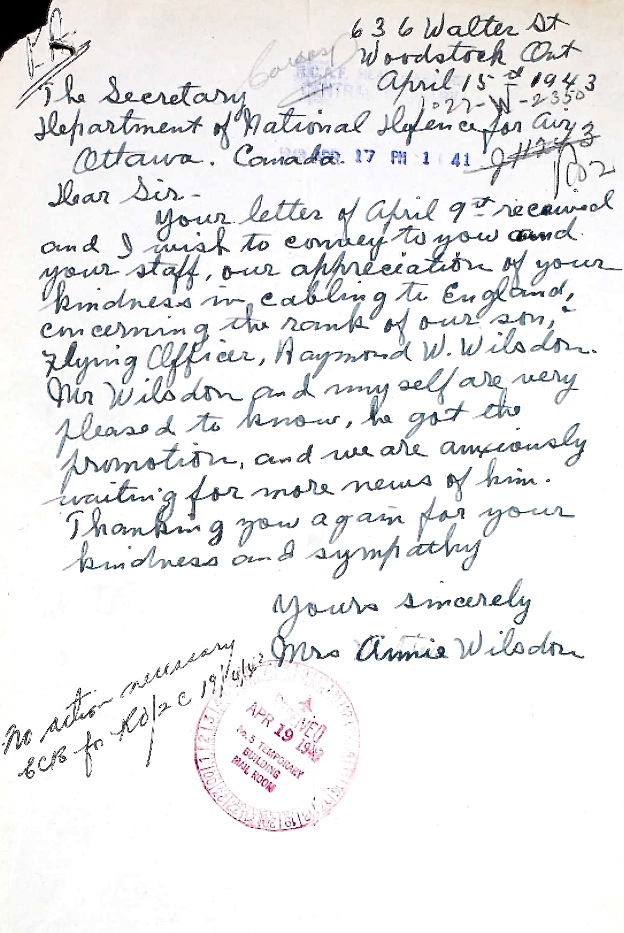 P.A.
636 Walter St
Woodstock Ont
April 15th 1943
The Secretary
Department of National Defence for Air
Ottawa. Canada.
17 PM 1 41
Dear Sir-
Your letter of April 9th received
and I wish to convey to you and
your staff, our appreciation of your
kindness in cabling to England,
concerning the rank of our son,
Flying Officer, Raymond W. Wilsdon.
Mr Wilsdon and myself are very
pleased to know, he got the
promotion, and we are anxiously
waiting for more news of him.
Thanking you again for your
kindness and sympathy
Yours sincerely
Mrs Annie Wilsdon
No action necessary
APR 19 1943
No. 5 TEMPORARY
BUILDING
MAIL ROOM